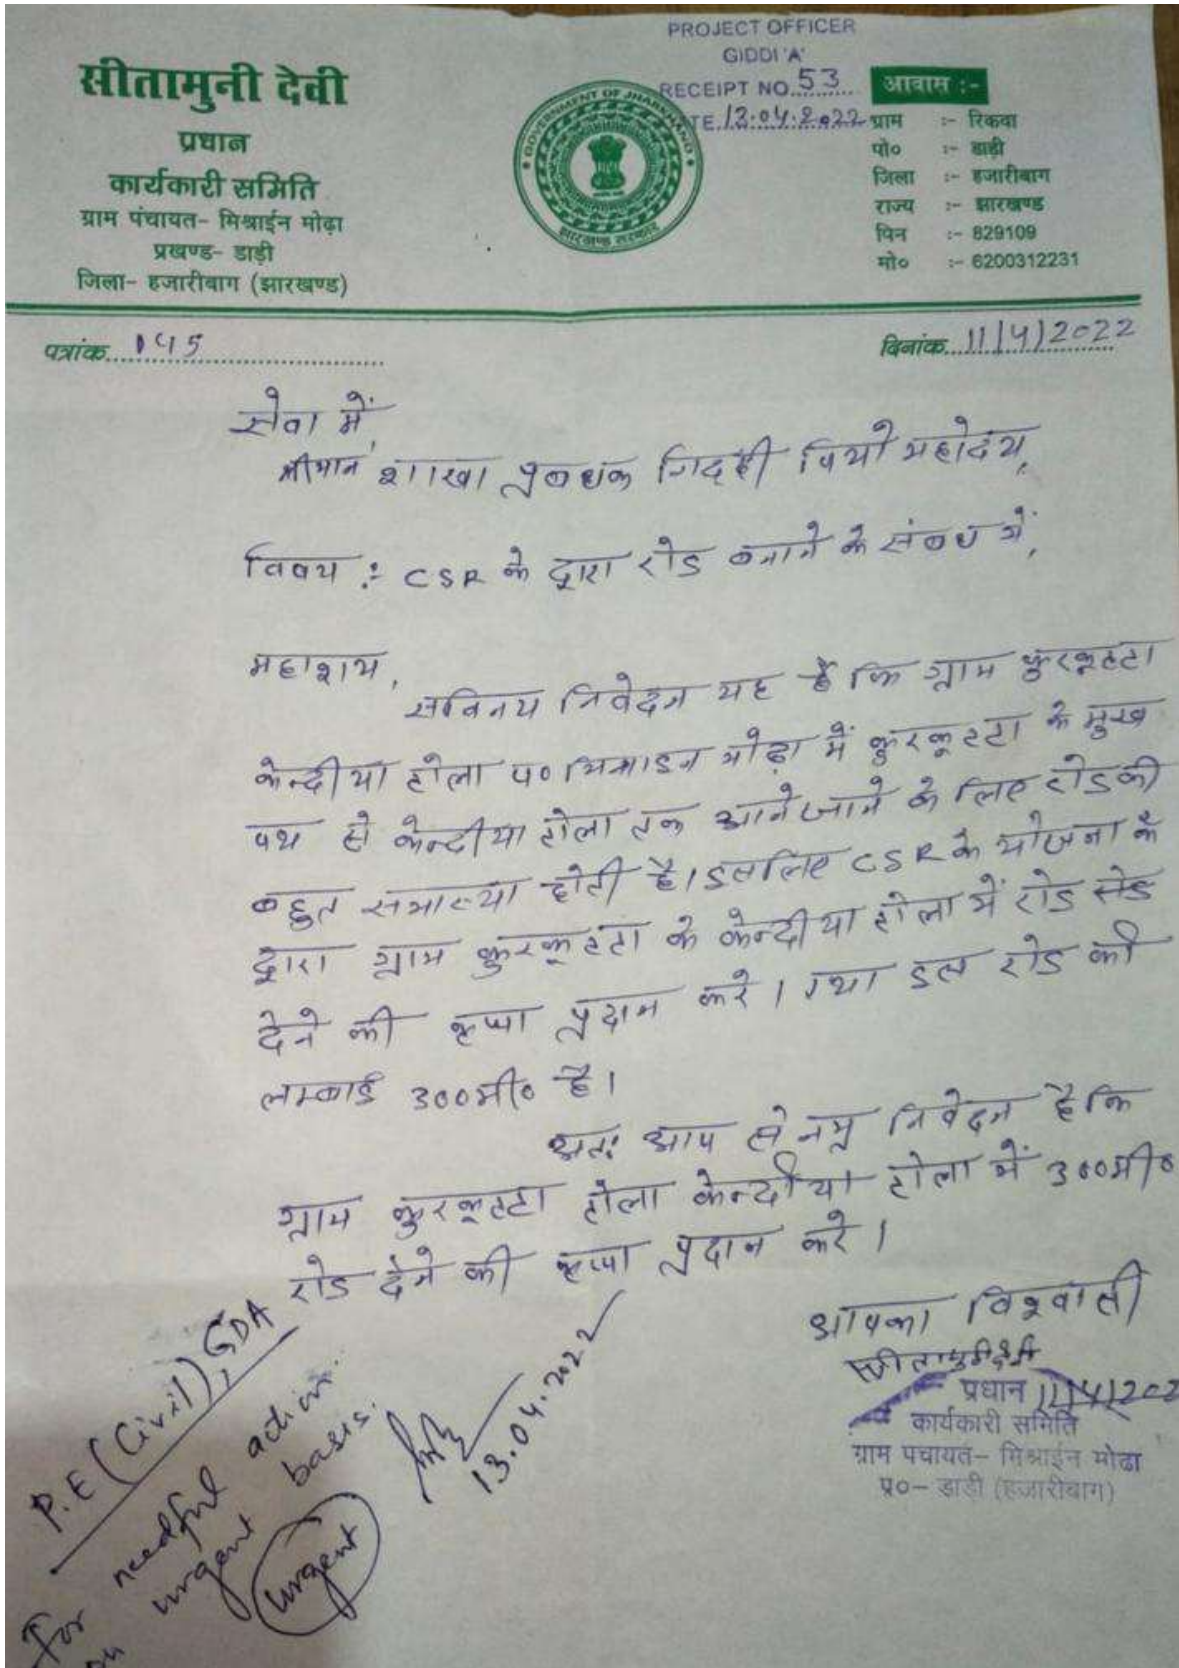 PROJECT OFFICER
GIDDI 'A'
RECEIPT NO. 53
TE 13.04.2022
सीतामुनी देवी
प्रधान
कार्यकारी समिति
ग्राम पंचायत- मिश्राईन मोढ़ा
प्रखण्ड- डाड़ी
जिला- हजारीबाग (झारखण्ड)
GOVERNMENT OF JHARKHAND
झारखण्ड सरकार
आवास :-
ग्राम :- रिकवा
पो० :- डाड़ी
जिला :- हजारीबाग
राज्य :- झारखण्ड
पिन :- 829109
मो० :- 6200312231
पत्रांक 145
दिनांक 11/4/2022
सेवा में,
श्रीमान शाखा प्रबधंक गिद्दी पियो महोदय,
विषय :- CSR के द्वारा रोड बनाने के संबध में,
महाशय,
सविनय निवेदन यह है कि ग्राम कुरकूटटा
केन्दीया टोला प० मिश्राइन मोढ़ा में कुरकूटटा के मुख
पथ से केन्दीया टोला तक आने जाने के लिए रोड की
बहुत समास्या होती है। इसलिए CSR के योजना के
द्वारा ग्राम कुरकूटटा के केन्दीया टोला में रोड
देने की कृपा प्रदान करे। तथा इस रोड की
लम्बाई 300मी० है।
अतः आप से नम्र निवेदन है कि
ग्राम कुरकूटटा टोला केन्दीया टोला में 300मी०
रोड देने की कृपा प्रदान करे।
आपका विश्वासी
सीतामुनी देवी
प्रधान 11/4/202
कार्यकारी समिति
ग्राम पचायत- मिश्राईन मोढा
प्र०- डाडी (हजारीबाग)
P.E (Civil), GDA
For needful action
on urgent basis.
urgent
13.04.2022